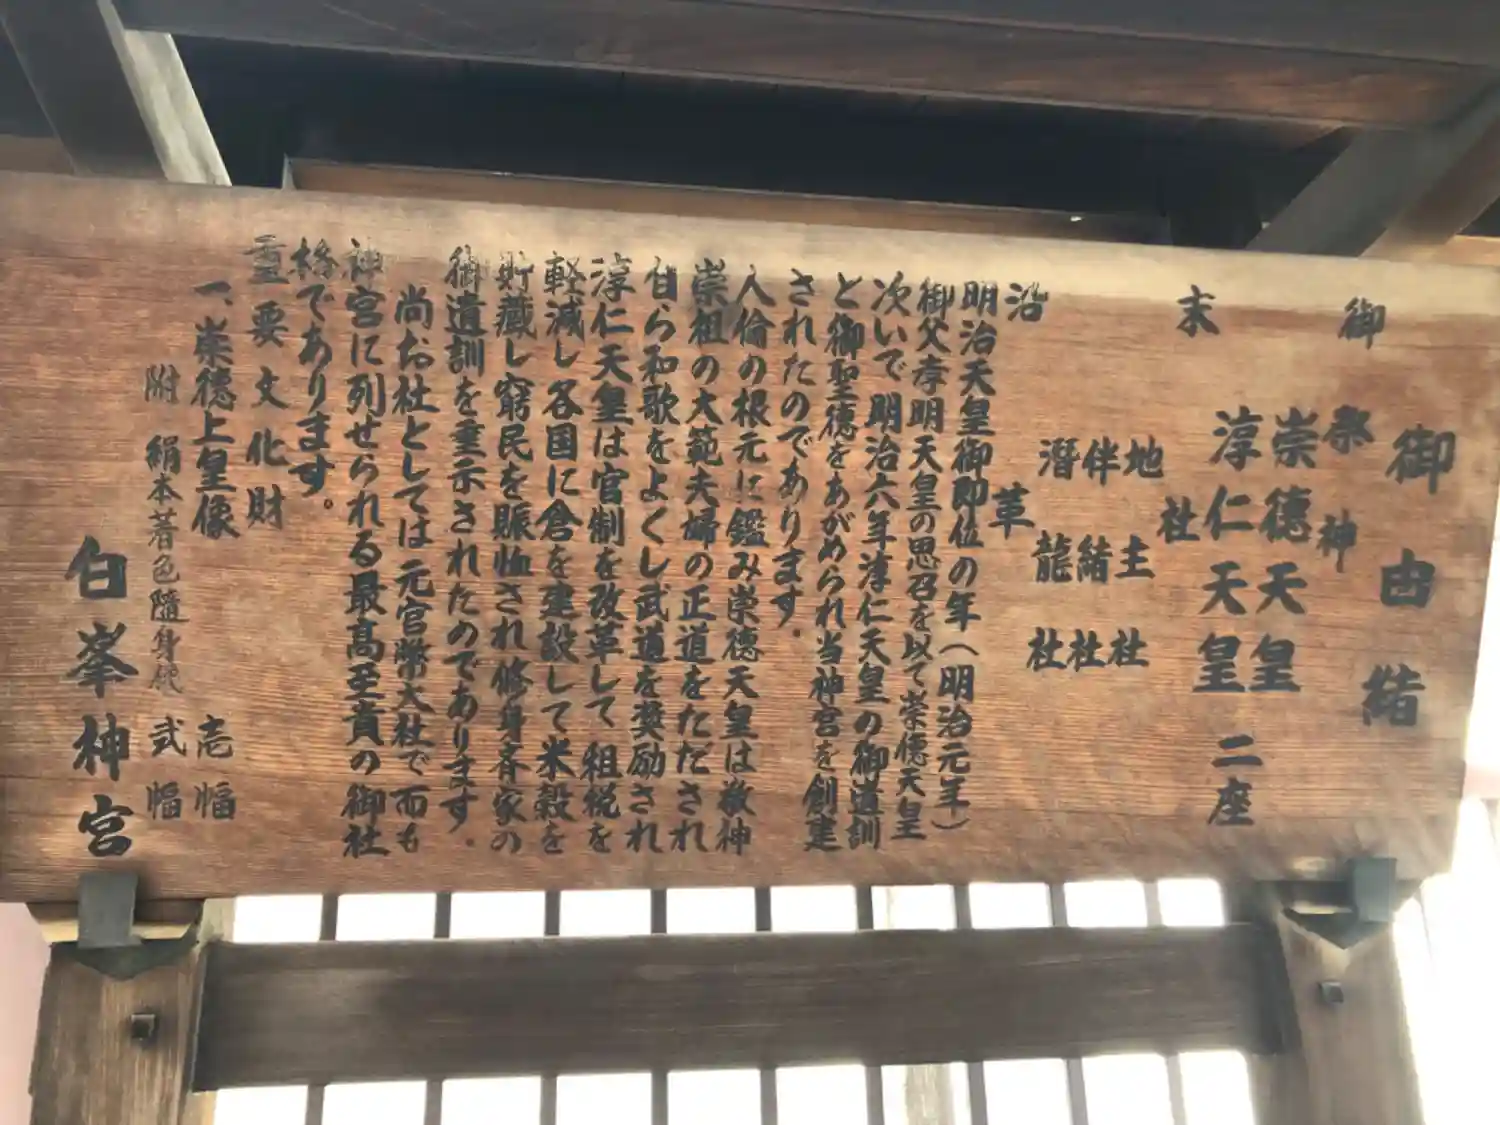 御由緒
御祭神
崇徳天皇
淳仁天皇 二座
末社
地主社
伴緒社
潛龍社
沿革
明治天皇御即位の年(明治元年)
御父孝明天皇の思召を以て崇徳天皇
次いで明治六年淳仁天皇の御遺訓
と御聖徳をあがめられ当神宮を創建
されたのであります。
人倫の根元に鑑み崇徳天皇は敬神
崇祖の大範夫婦の正道をたださ れ
自ら和歌をよくし武道を奨励され
淳仁天皇は官制を改革して租税を
軽減し各国に倉を建設して米穀を
貯藏し窮民を賑恤され修身斉家の
御遺訓を垂示されたのであります。
尚お社としては元官幣大社で而も
神宮に列せられる最髙至貴の御社
格であります。
重要文化財
一、崇徳上皇像 壱幅
附 絹本著色隨身庭 弐幅
白峯神宮